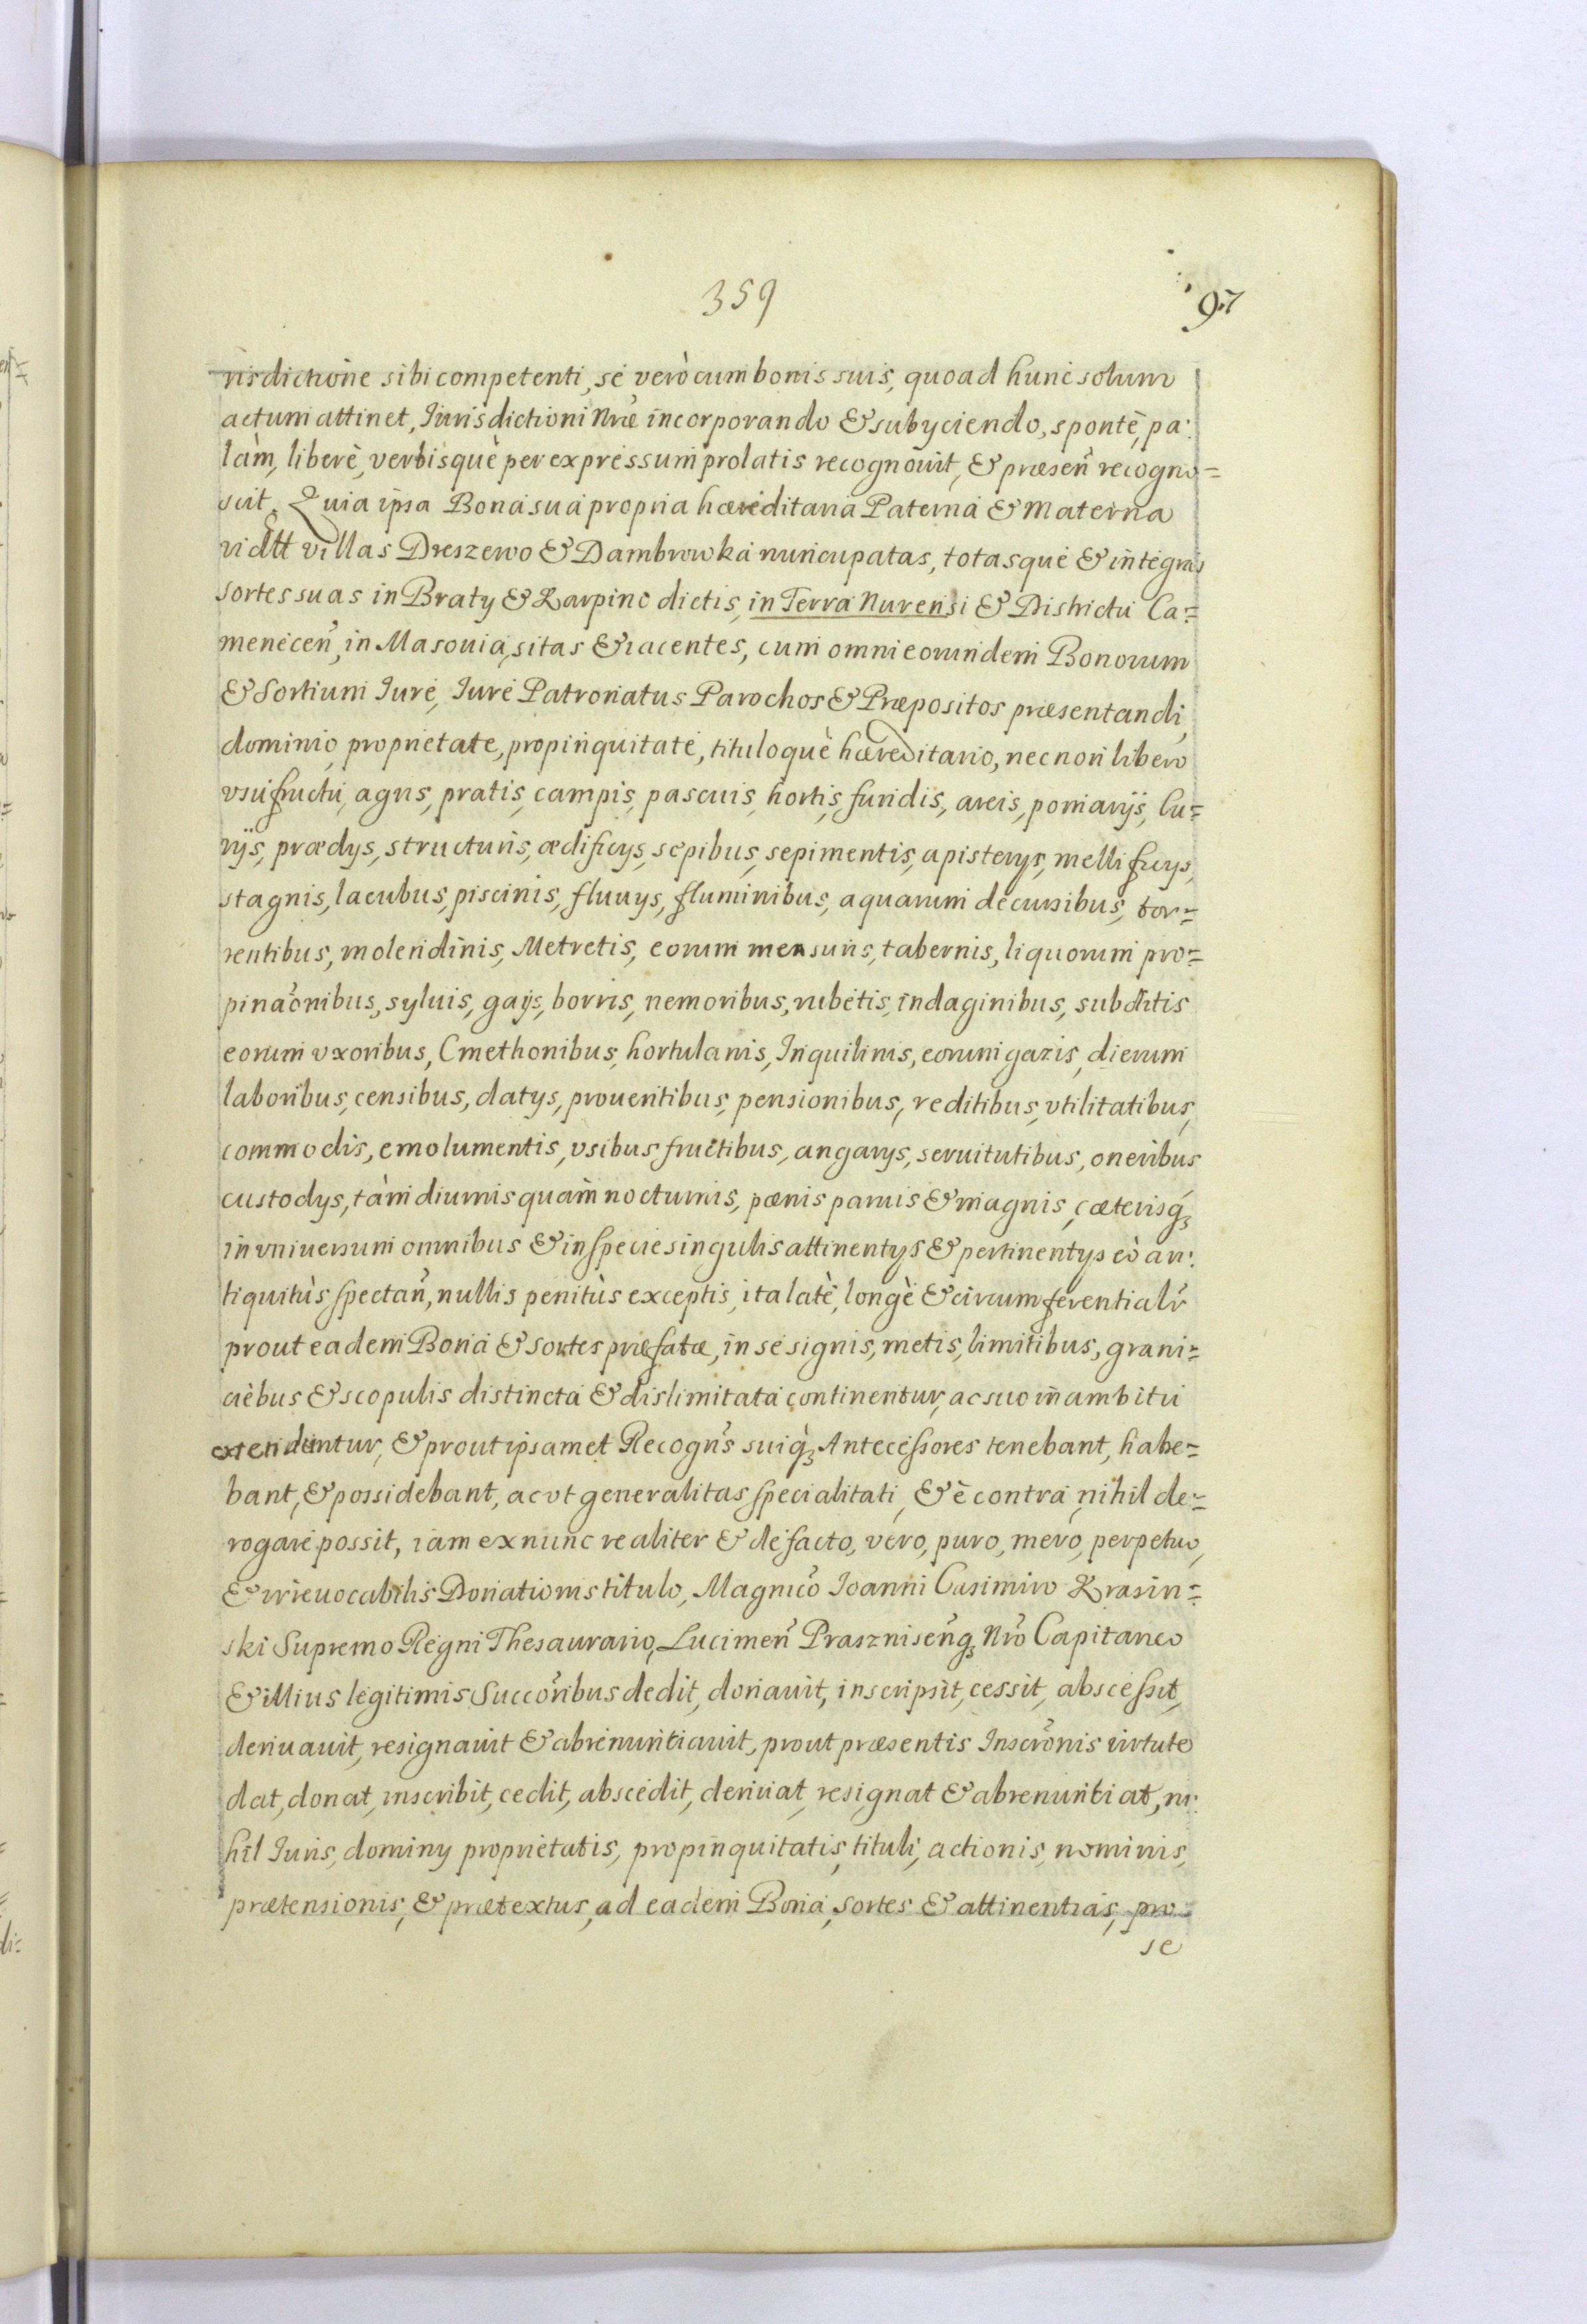 359
97
risdictione sibi competenti, se verò cum bonis suis, quoad hunc solum
actum attinet, Iurisdictioni Nræ incorporando & subyciendo, spontè, pa:
làm, liberè, verbisquè per expressum prolatis recognouit, & præsen̄ recogno=
scit. Quia ipsa Bona sua propria hæreditaria Paterna & Materna
vidtt villas Dreszewo & Dambrowka nuncupatas, totasque & integras
sortes suas in Braty & Karpinc dictis, in Terra Nurensi & Districtu Ca=
menecen̄, in Masouia, sitas & iacentes, cum omni eorundem Bonorum
& Sortium Iure, Iure Patronatus Parochos & Præpositos præsentandi,
dominio, proprietate, propinquitate, tituloquè hæreditario, necnon libero
vsufructu, agris, pratis, campis, pascuis, hortis, fundis, areis, pomarijs, Cu=
rijs, prædys, structuris, ædificys, sepibus, sepimentis, apisterys, mellificys,
stagnis, lacubus, piscinis, fluuys, fluminibus, aquarum decursibus, tor=
rentibus, molendinis, Metretis, eorum mensuris, tabernis, liquorum pro=
pinaōnibus, syluis, gays, borris, nemoribus, rubetis, indaginibus, subditis
eorum vxoribus, Cmethonibus, hortulanis, Inquilinis, eorum gazis, dierum
laboribus, censibus, datys, prouentibus, pensionibus, reditibus, vtilitatibus,
commodis, emolumentis, vsibus fructibus, angarys, seruitutibus, oneribus
custodys, tàm diurnis quàm nocturnis, pænis paruis & magnis, cæterisq́3
in vniuersum omnibus & in specie singulis attinentys & pertinentys eò an:
tiquitùs spectan̄, nullis penitùs exceptis, ita latè, longè & circumferentialr̄
prout eadem Bona & sortes præfatæ, in se signis, metis, limitibus, grani=
ciebus & scopulis distincta & dislimitata continentur, ac suo in ambitu
extenduntur, & prout ipsamet Recogn̄s suiq́3 Antecessores tenebant, habe=
bant, & possidebant, ac vt generalitas specialitati, & è contra nihil de=
rogare possit, iam ex nunc realiter & de facto, vero, puro, mero, perpetuo,
& irreuocabilis Donationis titulo, Magnico̅ Ioanni Casimiro Krasin=
ski Supremo Regni Thesaurario, Lucimen̄ Praszniseñq3 Nro̅ Capitaneo
& illius legitimis Succoribus dedit, donauit, inscripsit, cessit, abscessit,
deriuauit, resignauit & abrenuntiauit, prout præsentis Inscrōnis virtute
dat, donat, inscribit, cedit, abscedit, deriuat, resignat & abrenuntiat, ni:
hil Iuris, dominy proprietatis, propinquitatis, tituli, actionis, nominis,
prætensionis, & prætextus, ad eadem Bona, sortes & attinentias, pro
se